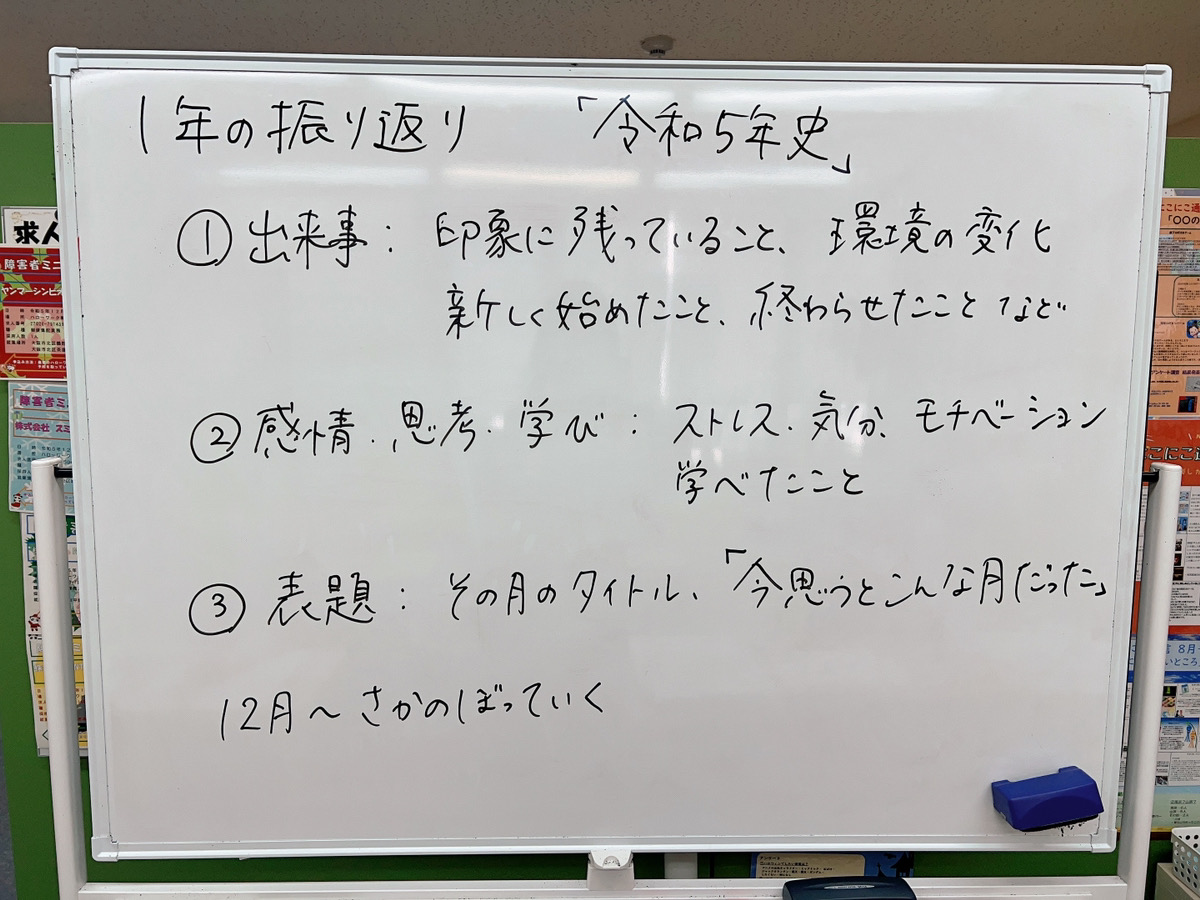 1年の振り返り 「令和5年史」
①出来事: 印象に残っていること、環境の変化
新しく始めたこと、終わらせたこと など
②感情・思考・学び: ストレス・気分、モチベーション
学べたこと
③表題: その月のタイトル、「今思うとこんな月だった」
12月~さかのぼっていく
求人
障害者ミニ
障害者ミニ
株式会社 スミ
こにこ通
「〇〇の
にこにこ通
8月
アンケート